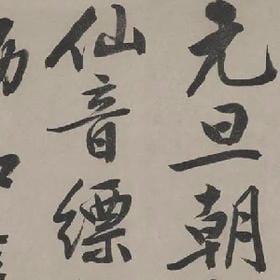 元旦朝
仙音縹